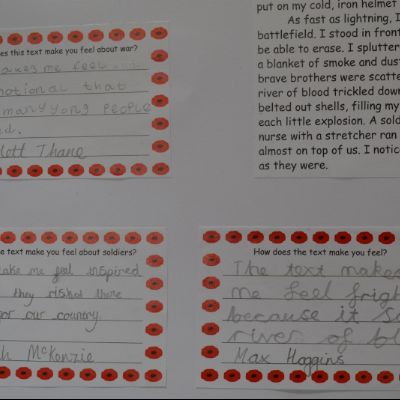 es this text make you feel about war?
akes me feel
motional that
many yong people
ed.
lott Thane
put on my cold, iron helmet
As fast as lightning, I
battlefield. I stood in front
be able to erase. I splutter
a blanket of smoke and dus
brave brothers were scatte
river of blood trickled down
belted out shells, filling my
each little explosion. A sold
nurse with a stretcher ran
almost on top of us. I notic
as they were.
e text make you feel about soldiers?
ake me feel inspired
they risked there
for our country.
ah McKenzie
How does the text make you feel?
The text makes
me feel frigh
because it sa
river of bl
Max Hoggins